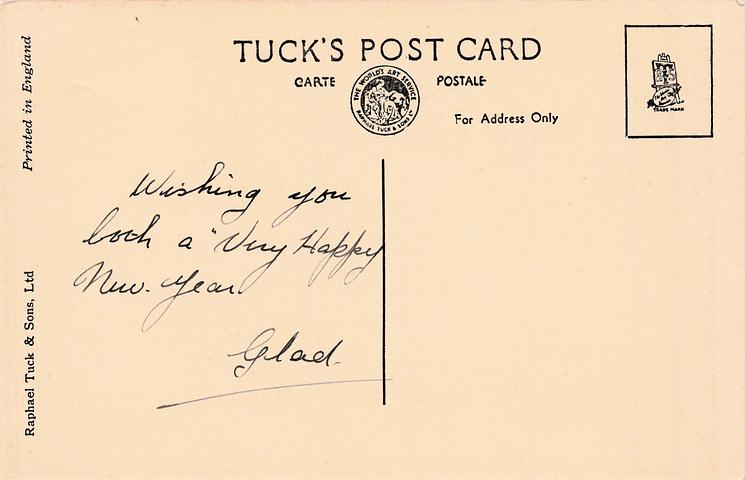 TUCK'S POST CARD
CARTE POSTALE
THE WORLD'S ART SERVICE
RAPHAEL TUCK & SONS LD
For Address Only
TRADE MARK
Printed in England
Raphael Tuck & Sons, Ltd
Wishing you
both a "Very Happy
New. Year.
Glad.